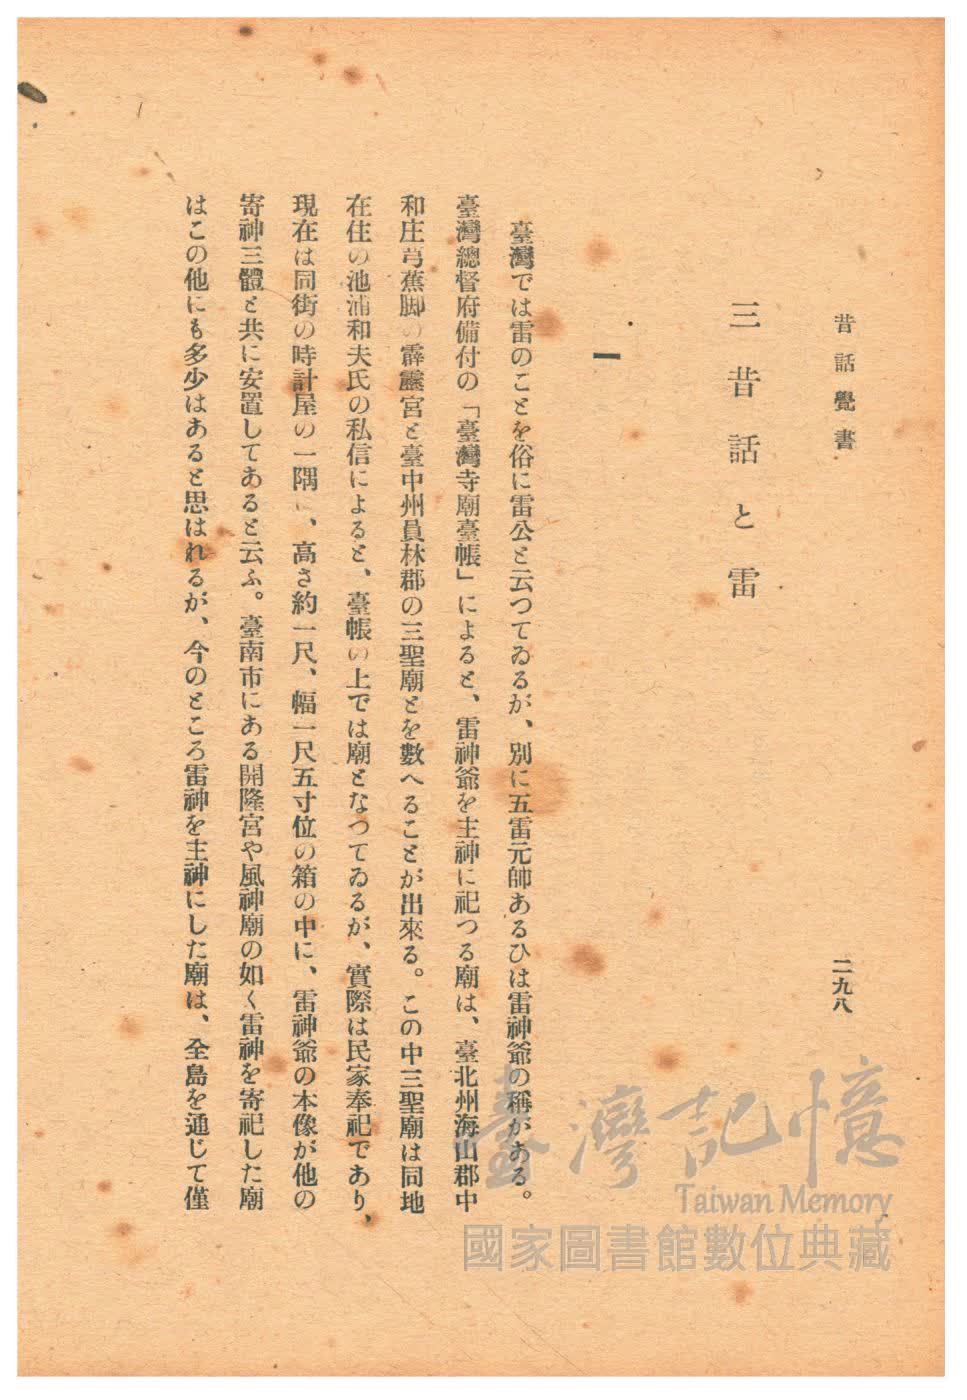 昔話覺書
二九八
三 昔話と雷
一
臺灣では雷のことを俗に雷公と云つてゐるが、別に五雷元帥あるひは雷神爺の稱がある。
臺灣總督府備付の「臺灣寺廟臺帳」によると、雷神爺を主神に祀つる廟は、臺北州海山郡中
和庄芎蕉脚の霹靂宮と臺中州員林郡の三聖廟とを數へることが出來る。この中三聖廟は同地
在住の池浦和夫氏の私信によると、臺帳の上では廟となつてゐるが、實際は民家奉祀であり、
現在は同街の時計屋の一隅に、高さ約一尺、幅一尺五寸位の箱の中に、雷神爺の本像が他の
寄神三體と共に安置してあると云ふ。臺南市にある開隆宮や風神廟の如く雷神を寄祀した廟
はこの他にも多少はあると思はれるが、今のところ雷神を主神にした廟は、全島を通じて僅
臺灣記憶
Taiwan Memory
國家圖書館數位典藏